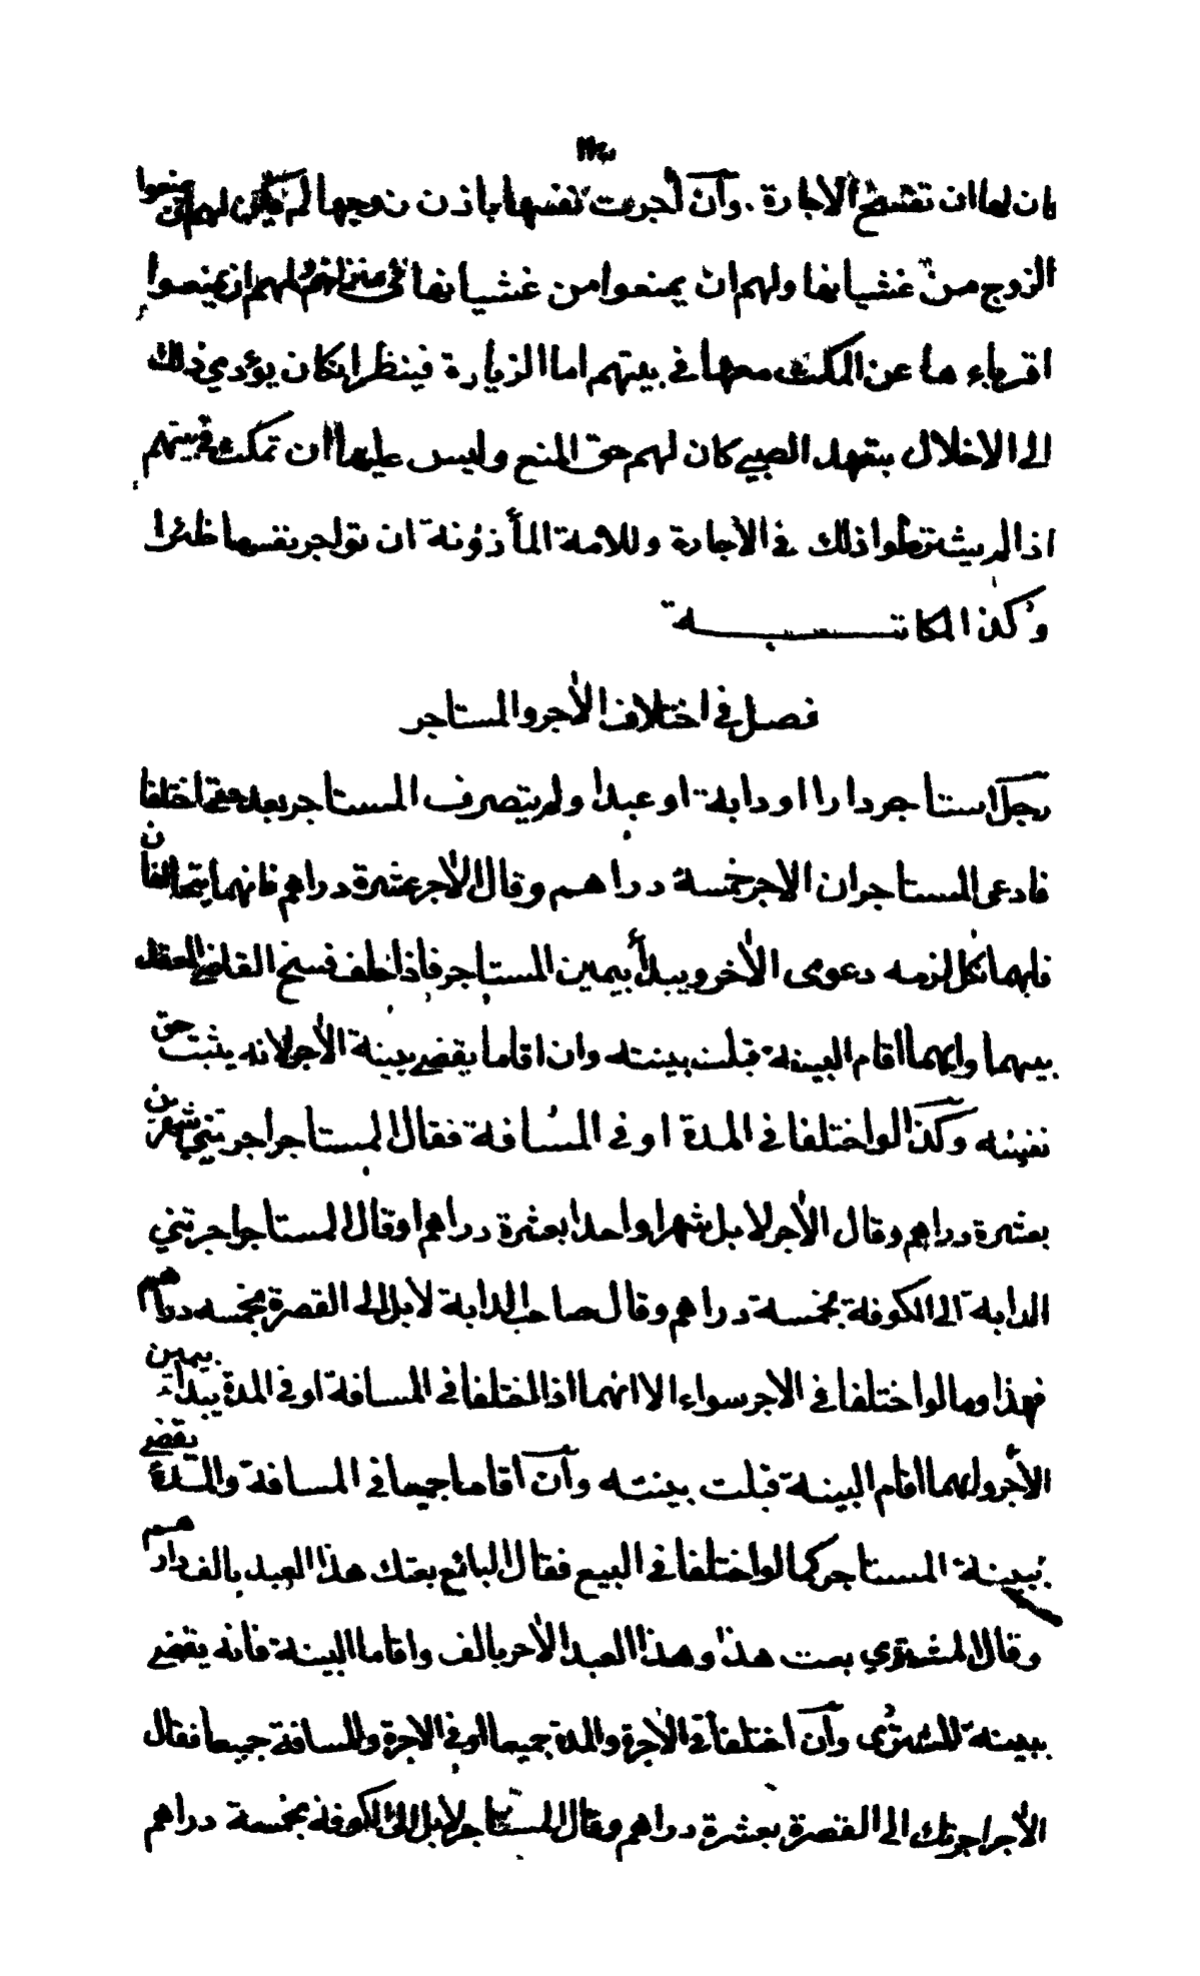 كان لها ان تفسخ الاجارة . وان آجرت نفسها باذن زوجها لم يكن لهم ان يمنعوا
الزوج من غشيانها ولهم ان يمنعوا من غشيانها في منزلهم ولهم ان يمنعوا
اقرباءها عن المكث معها في بيتهم اما الزيارة فينظر ان كان يؤدي ذلك
الى الاخلال بتعهد الصبي كان لهم حق المنع وليس عليها ان تمكث في بيتهم
اذا لم يشترطوا ذلك في الاجارة وللامة المأذونة ان تواجر نفسها ظئرا
وكذا المكاتبة
فصل في اختلاف الآجر والمستاجر
رجل استاجر دارا او دابة او عبدا ولم يتصرف المستاجر بعد حتى اختلفا
فادعى المستاجر ان الاجر خمسة دراهم وقال الآجر عشرة دراهم فانهما يتحالفان
فايهما نكل لزمه دعوى الآخر ويبدأ بيمين المستاجر فاذا حلف فسخ القاضي العقد
بينهما وايهما اقام البينة قبلت بينته وان اقاما يقضي ببينة الآجر لانه يثبت حق
نفسه وكذا لو اختلفا في المدة او في المسافة فقال المستاجر اجرتني شهرين
بعشرة دراهم وقال الآجر لا بل شهرا واحدا بعشرة دراهم او قال المستاجر اجرتني
الدابة الى الكوفة بخمسة دراهم وقال صاحب الدابة لا بل الى القصرة بخمسه دراهم
فهذا وما لو اختلفا في الاجر سواء الا انهما اذا اختلفا في المسافة او في المدة يبدأ بيمين
الآجر وايهما اقام البينة قبلت بينته وان اقاما جميعا في المسافة والمدة يقضي
ببينة المستاجر كما لو اختلفا في البيع فقال البائع بعتك هذا العبد بالف دراهم
وقال المشتري بعت هذا وهذا العبد الآخر بالف واقاما البينة فانه يقضي
ببينة المشترى وان اختلفا في الاجرة والمدة جميعا او في الاجرة والمسافة جميعا فقال
الآجر اجرتك الى القصرة بعشرة دراهم وقال المستاجر لا بل الى الكوفة بخمسة دراهم